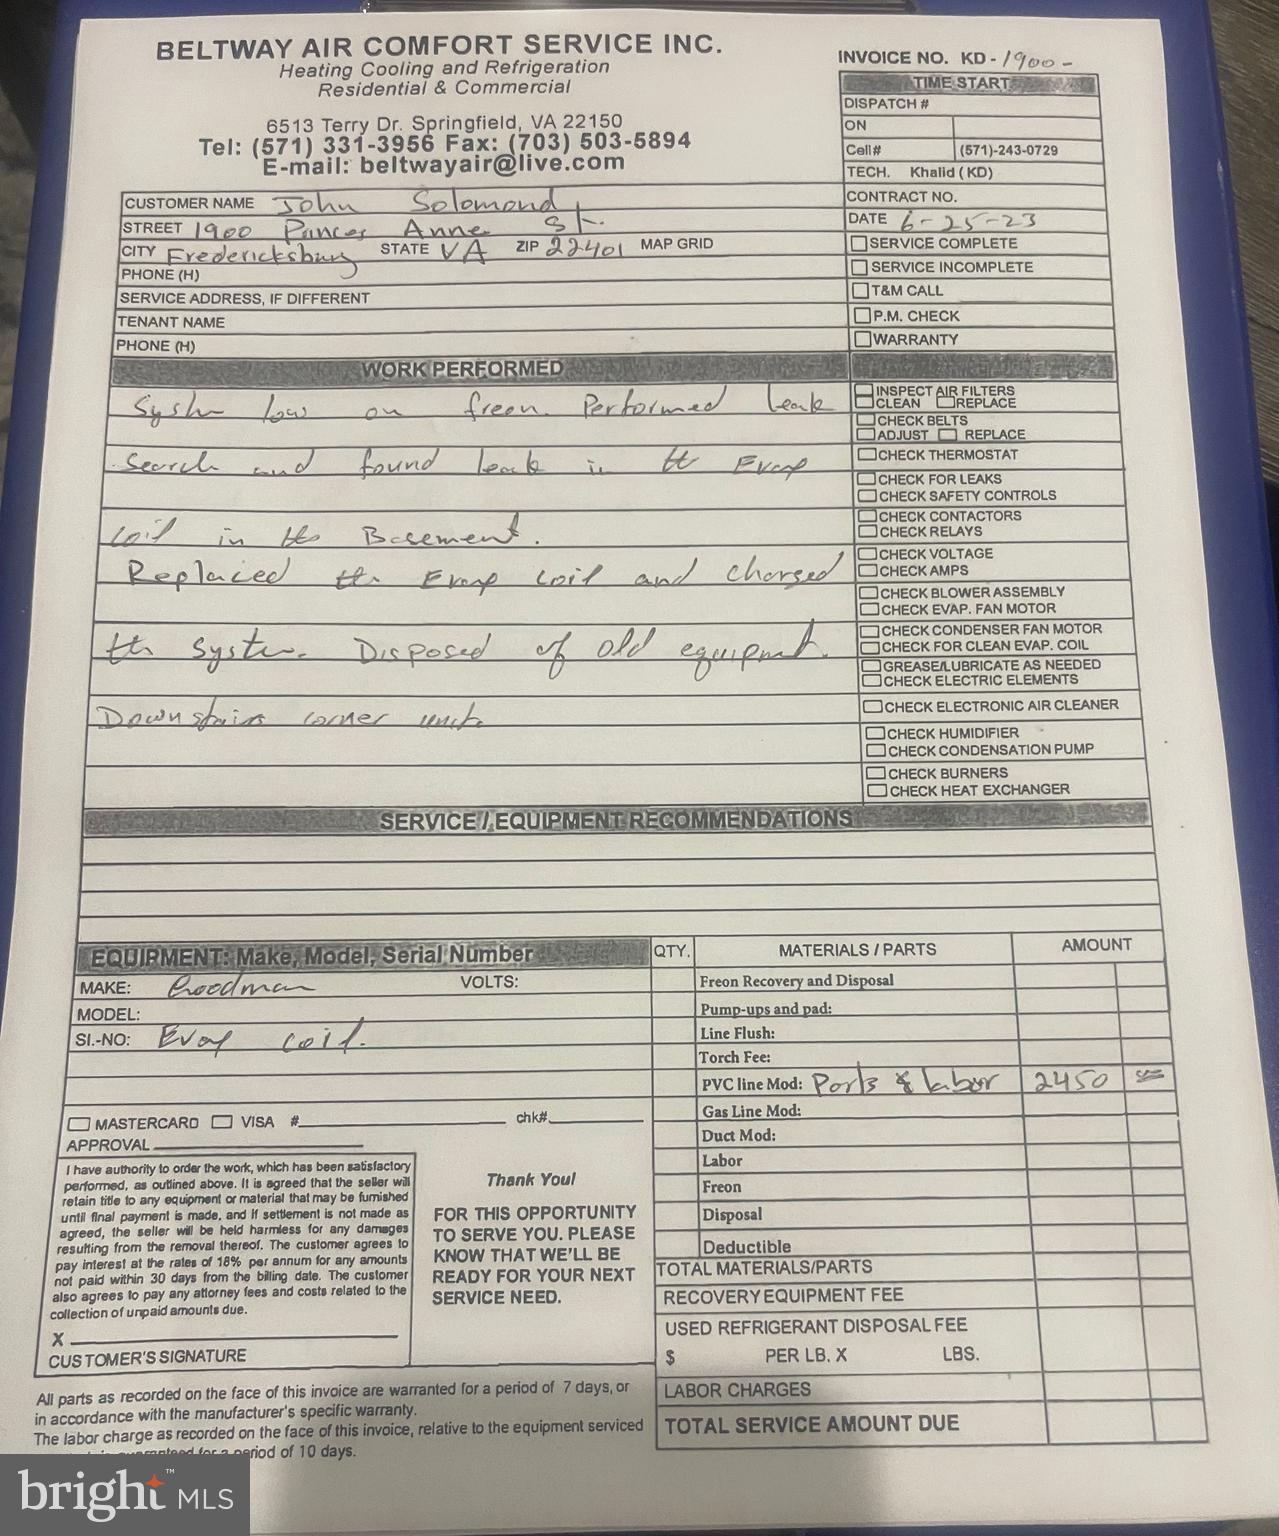 BELTWAY AIR COMFORT SERVICE INC.
Heating Cooling and Refrigeration
Residential & Commercial
6513 Terry Dr. Springfield, VA 22150
Tel: (571) 331-3956 Fax: (703) 503-5894
E-mail: beltwayair@live.com
INVOICE NO. KD - 1900 -
TIME START
DISPATCH #
ON
Cell# (571)-243-0729
TECH. Khalid (KD)
CONTRACT NO.
DATE 6-25-23
SERVICE COMPLETE
SERVICE INCOMPLETE
T&M CALL
P.M. CHECK
WARRANTY
CUSTOMER NAME John Solomond
STREET 1900 Anne St.
CITY Fredericksburg STATE VA ZIP 22401 MAP GRID
PHONE (H)
SERVICE ADDRESS, IF DIFFERENT
TENANT NAME
PHONE (H)
WORK PERFORMED
System low on freon. Performed leak
search and found leak in the Evap
coil in the Basement.
Replaced the Evap coil and charged
the system. Disposed of old equipment.
Downstairs corner unit.
INSPECT AIR FILTERS
CLEAN REPLACE
CHECK BELTS
ADJUST REPLACE
CHECK THERMOSTAT
CHECK FOR LEAKS
CHECK SAFETY CONTROLS
CHECK CONTACTORS
CHECK RELAYS
CHECK VOLTAGE
CHECK AMPS
CHECK BLOWER ASSEMBLY
CHECK EVAP. FAN MOTOR
CHECK CONDENSER FAN MOTOR
CHECK FOR CLEAN EVAP. COIL
GREASE/LUBRICATE AS NEEDED
CHECK ELECTRIC ELEMENTS
CHECK ELECTRONIC AIR CLEANER
CHECK HUMIDIFIER
CHECK CONDENSATION PUMP
CHECK BURNERS
CHECK HEAT EXCHANGER
SERVICE / EQUIPMENT RECOMMENDATIONS
EQUIPMENT: Make, Model, Serial Number
MAKE: Goodman VOLTS:
MODEL:
SI.-NO: Evap coil.
MASTERCARD VISA # chk#
APPROVAL
I have authority to order the work, which has been satisfactory
performed, as outlined above. It is agreed that the seller will
retain title to any equipment or material that may be furnished
until final payment is made, and if settlement is not made as
agreed, the seller will be held harmless for any damages
resulting from the removal thereof. The customer agrees to
pay interest at the rates of 18% per annum for any amounts
not paid within 30 days from the billing date. The customer
also agrees to pay any attorney fees and costs related to the
collection of unpaid amounts due.
X
CUSTOMER'S SIGNATURE
Thank You!
FOR THIS OPPORTUNITY
TO SERVE YOU. PLEASE
KNOW THAT WE'LL BE
READY FOR YOUR NEXT
SERVICE NEED.
QTY. MATERIALS / PARTS AMOUNT
Freon Recovery and Disposal
Pump-ups and pad:
Line Flush:
Torch Fee:
PVC line Mod: Parts & labor 2450
Gas Line Mod:
Duct Mod:
Labor
Freon
Disposal
Deductible
TOTAL MATERIALS/PARTS
RECOVERY EQUIPMENT FEE
USED REFRIGERANT DISPOSAL FEE
$ PER LB. X LBS.
LABOR CHARGES
TOTAL SERVICE AMOUNT DUE
All parts as recorded on the face of this invoice are warranted for a period of 7 days, or
in accordance with the manufacturer's specific warranty.
The labor charge as recorded on the face of this invoice, relative to the equipment serviced
for a period of 10 days.
bright MLS